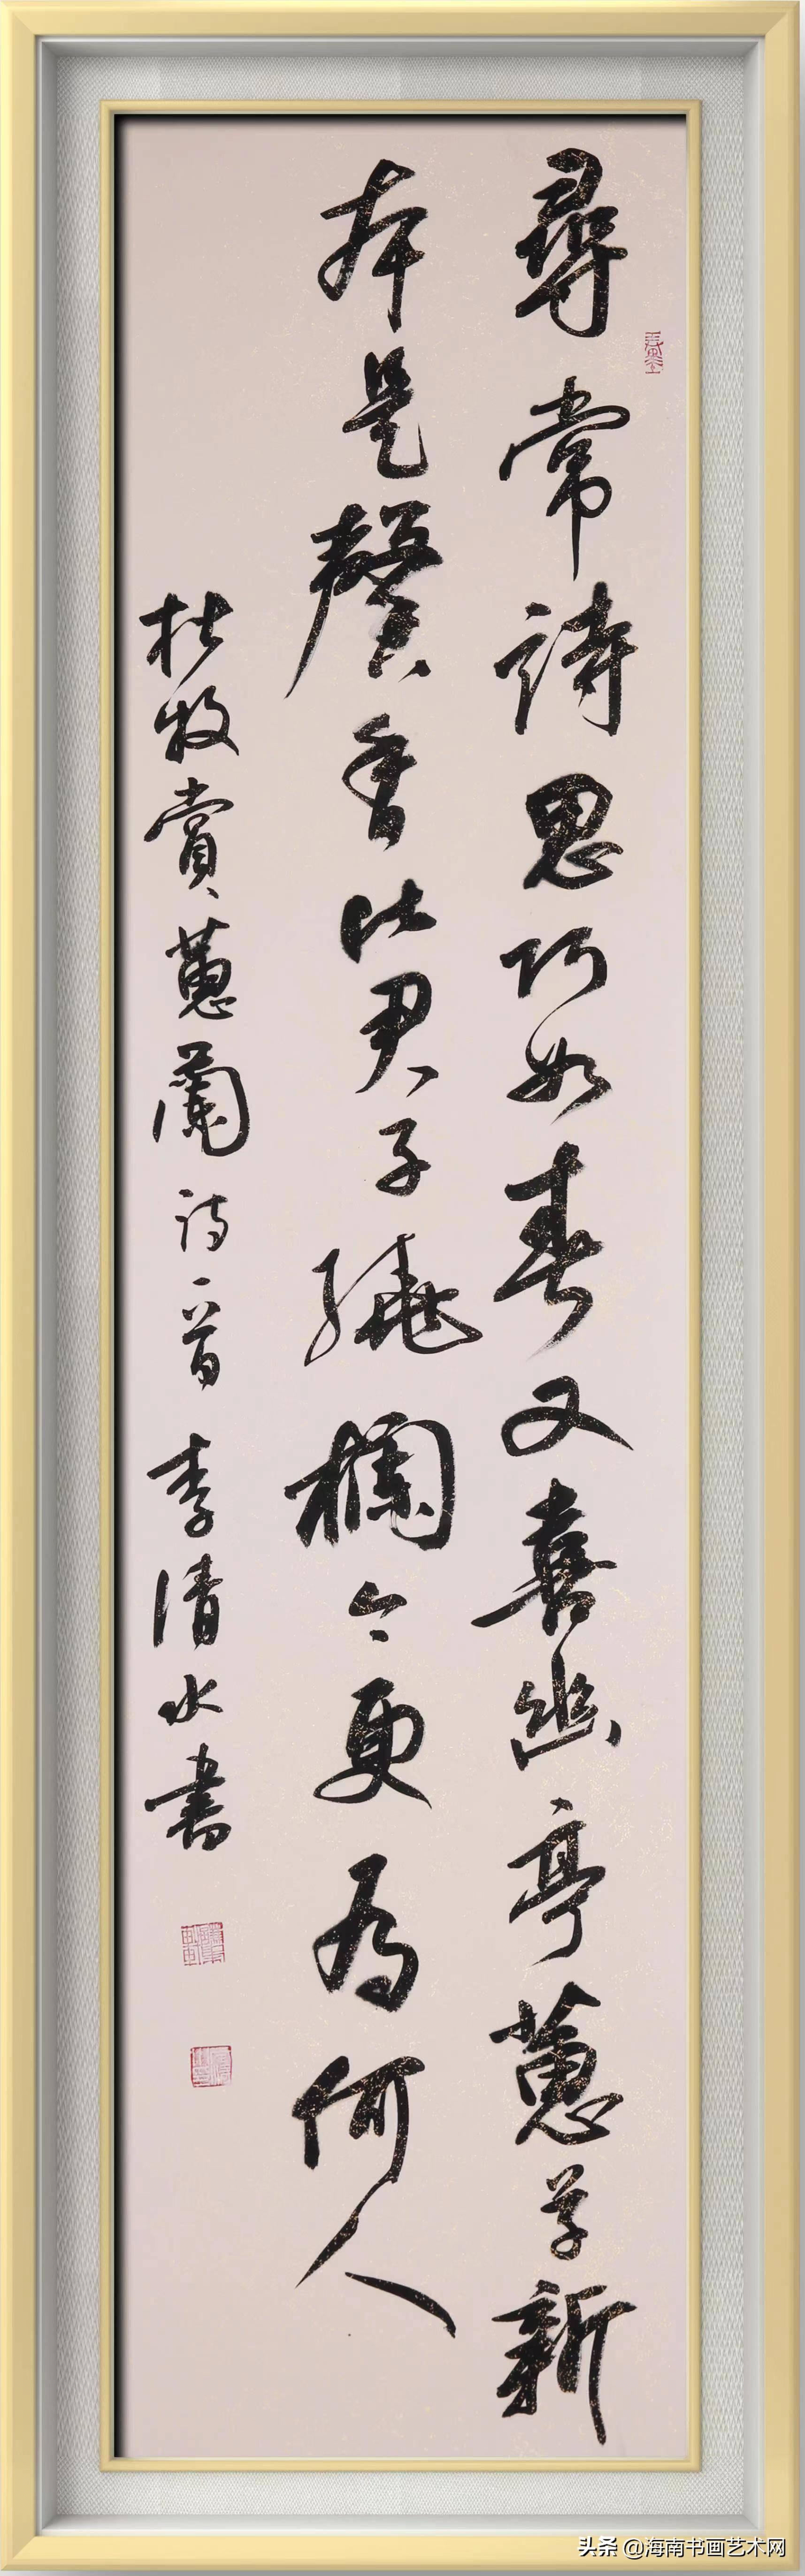 尋常詩思巧如春又喜幽亭蕙草新
本是馨香比君子繞欄今更為何人
杜牧賞蕙蘭詩一首李清水書
头条 @海南书画艺术网